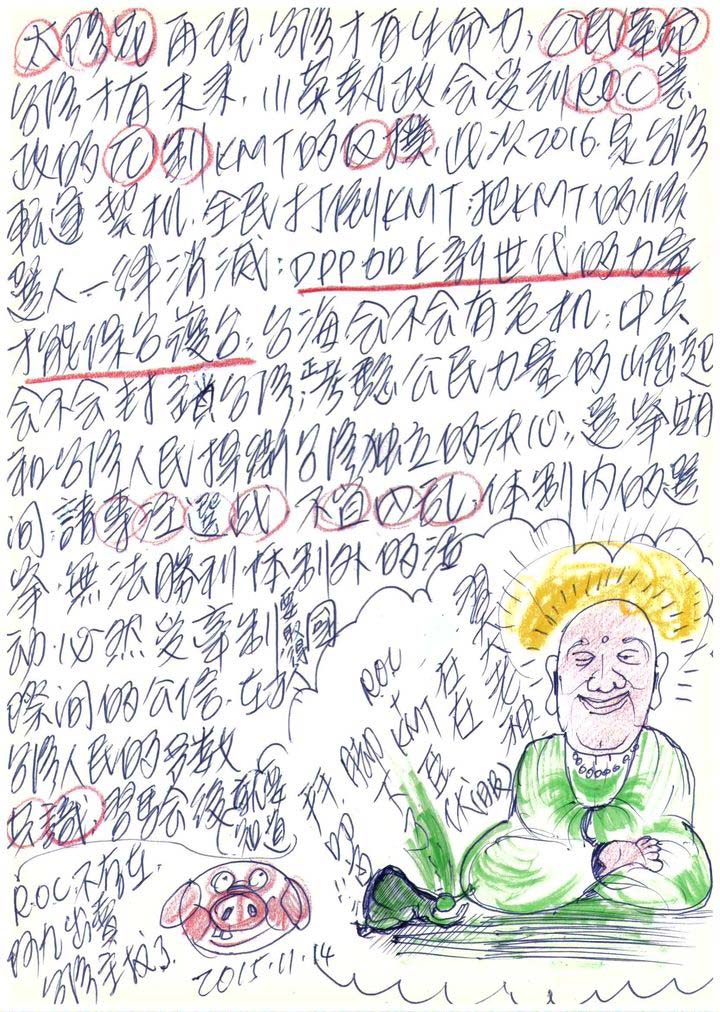 太陽花再現，台灣才有生命力，公民革命
台灣才有未來，小英執政会受到R.O.C憲
政的花制KMT的反撲，此次2016.是台灣
轉運契机，全民打倒KMT，把KMT的候
選人一律消滅；DPP加上新世代的力量
才能保台護台，台海会不会有危机；中共
会不会封鎖台灣，考驗公民力量的崛起
和台灣人民捍衛台灣独立的決心，選舉期
间，請專注選戰 不道内乱 体制内的選
舉，無法勝利，体制外的活
动，心然受牽制
國
際间的公信，在於
台灣人民的多数
共識，習馬会後就
知道
R.O.C.不存在，
阿九出賣
台灣主权了
2015.11.14
習大老神
在在
R.O.C
+
KMT
不亞